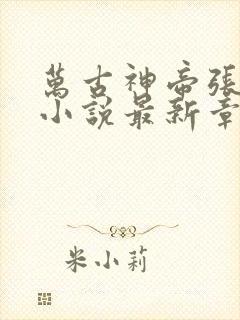 萬古神帝張
小說最新章
米小莉